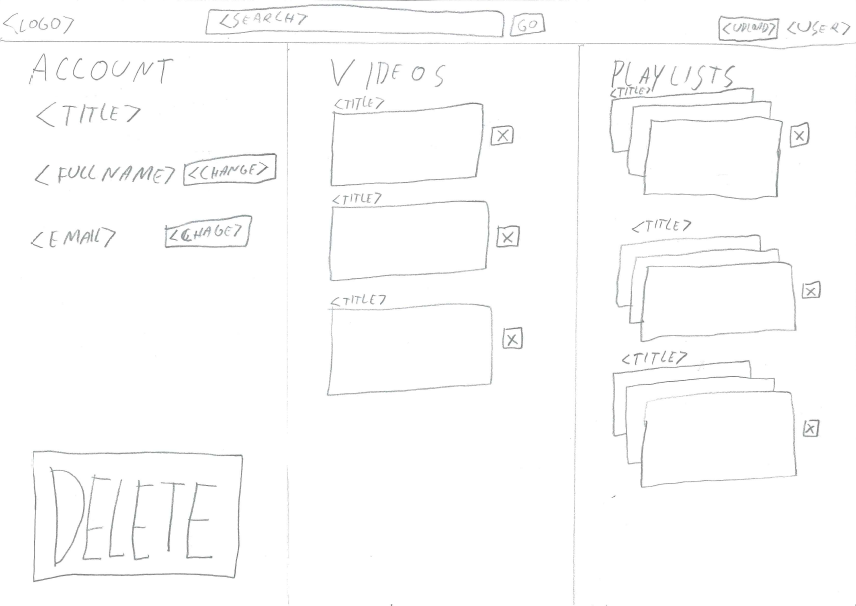 <LOGO> <SEARCH> GO <UPLOAD> <USER>
ACCOUNT
<TITLE>
<FULL NAME> <CHANGE>
<EMAIL> <CHAGE>
DELETE
VIDEOS
<TITLE>
X
<TITLE>
X
<TITLE>
X
PLAYLISTS
<TITLE>
X
<TITLE>
X
<TITLE>
X